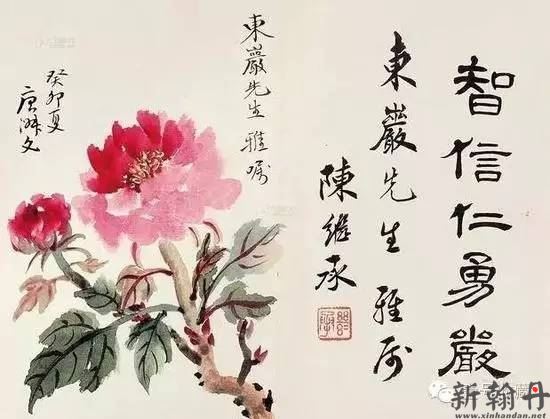 智信仁勇嚴
東巖先生 雅属
陳繼承
東巖先生 雅嘱
癸卯夏
唐 文
新翰丹
www.xinhandan.net